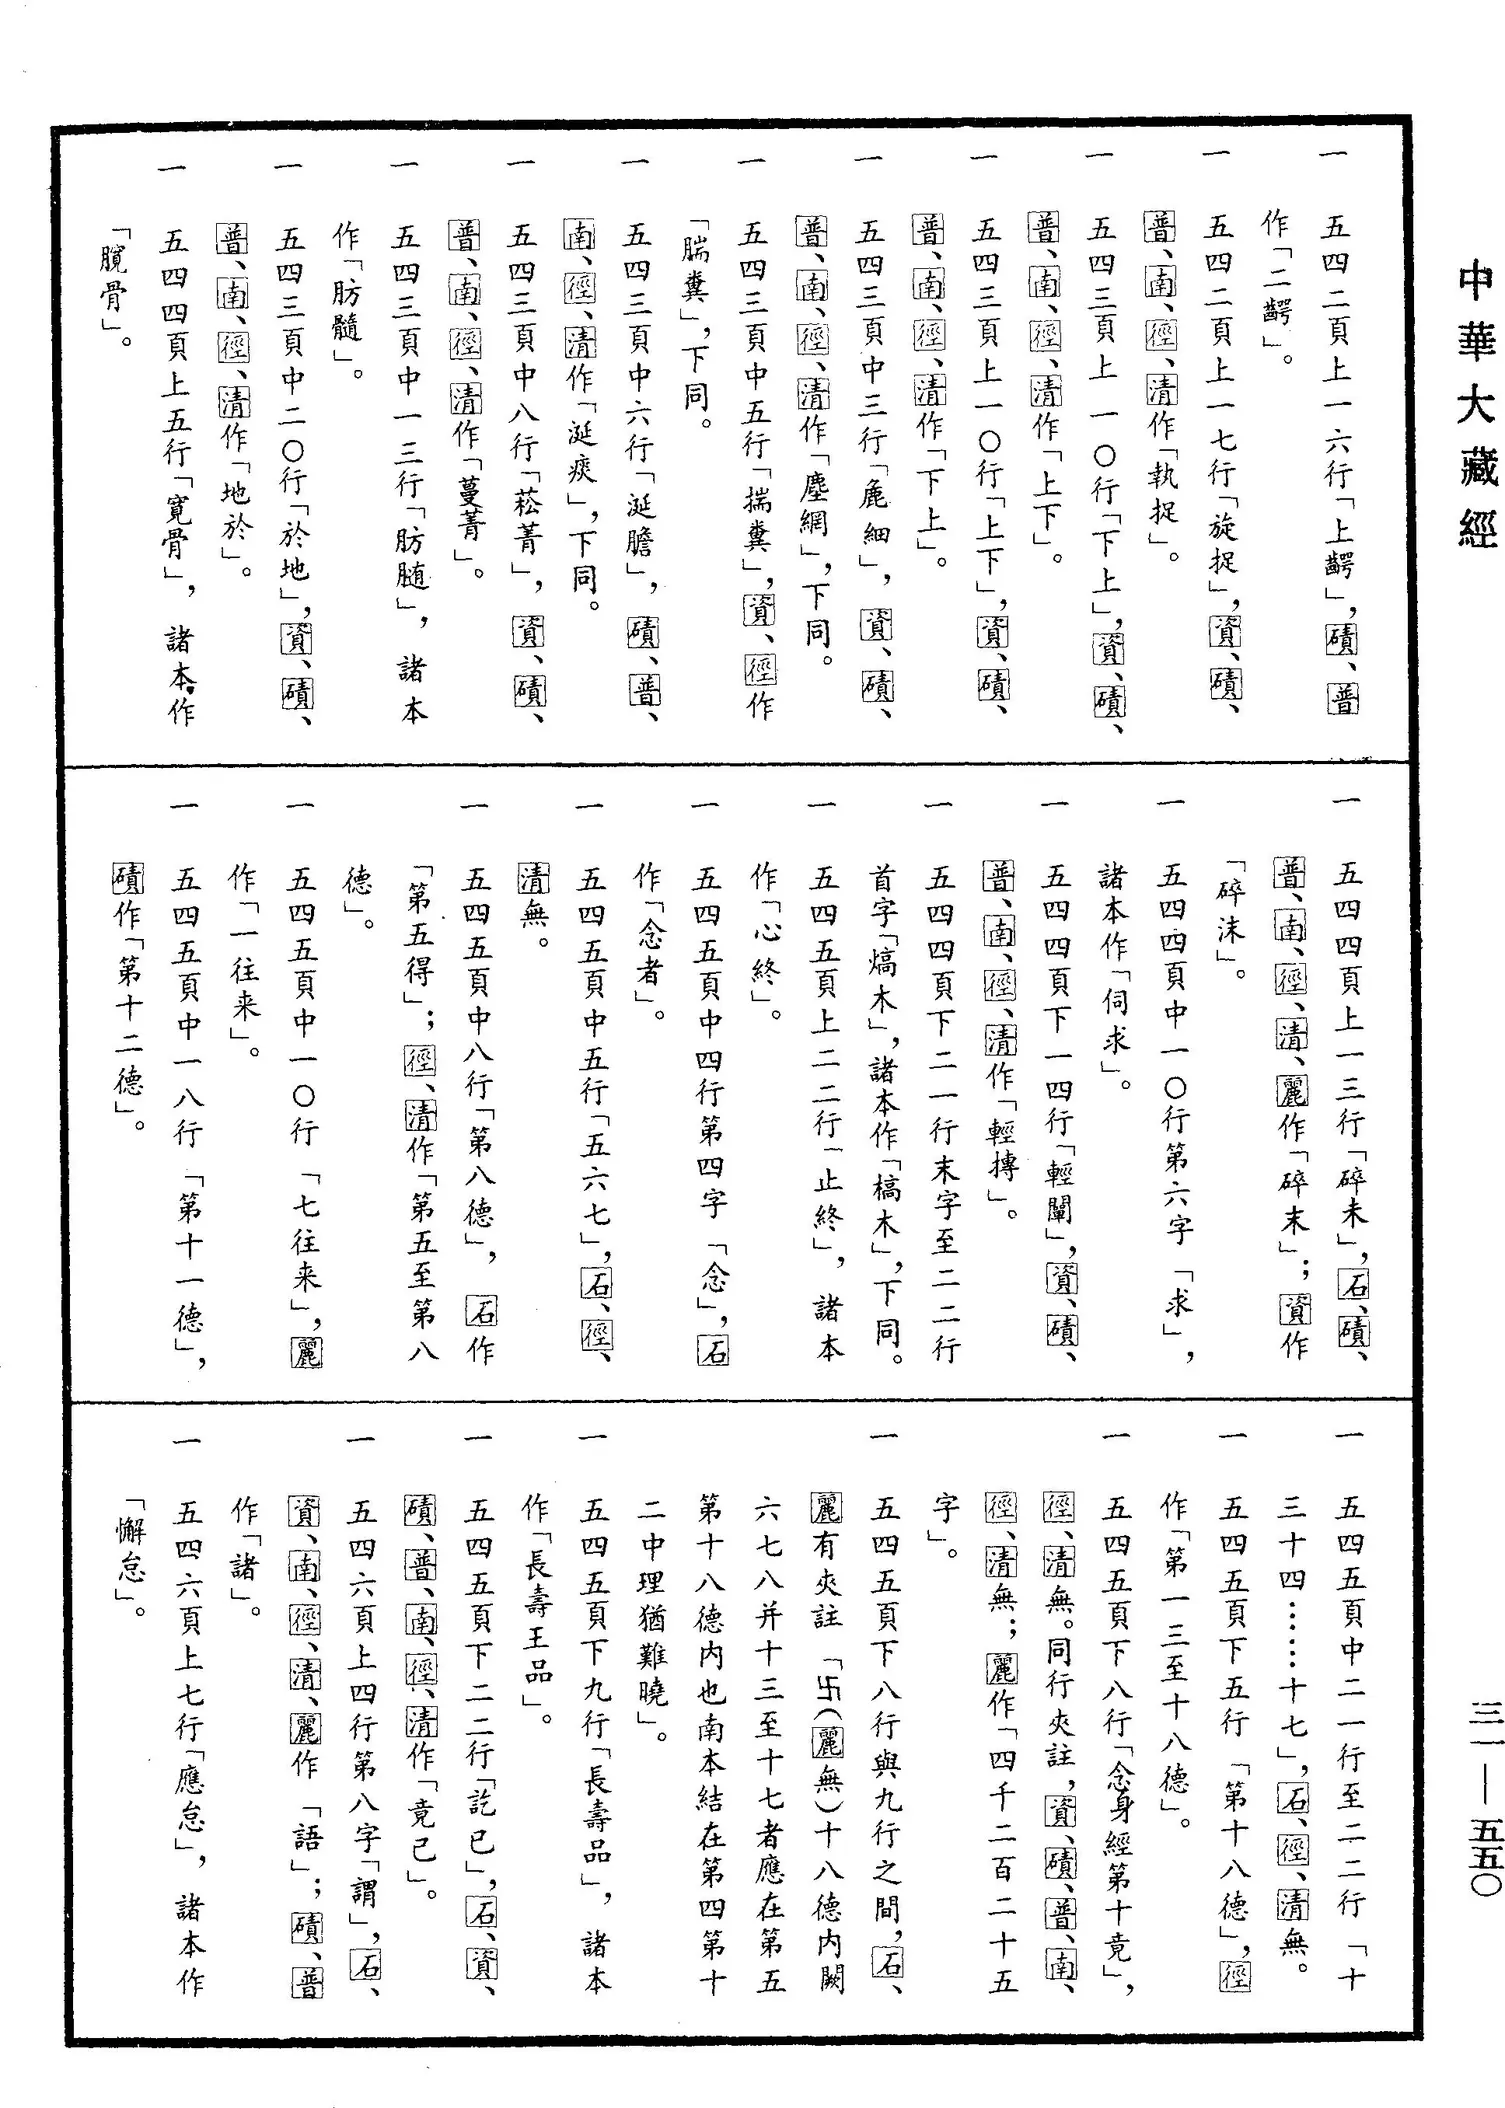 中華大藏經
三一—五五〇
一 五四二頁上一六行「上齶」，磧、普
作「二齶」。
一 五四二頁上一七行「旋捉」，資、磧、
普、南、徑、清作「執捉」。
一 五四三頁上一〇行「下上」，資、磧、
普、南、徑、清作「上下」。
一 五四三頁上一〇行「上下」，資、磧、
普、南、徑、清作「下上」。
一 五四三頁中三行「麁細」，資、磧、
普、南、徑、清作「塵網」，下同。
一 五四三頁中五行「揣糞」，資、徑作
「腨糞」，下同。
一 五四三頁中六行「涎膽」，磧、普、
南、徑、清作「涎痰」，下同。
一 五四三頁中八行「菘菁」，資、磧、
普、南、徑、清作「蔓菁」。
一 五四三頁中一三行「肪髄」，諸本
作「肪髓」。
一 五四三頁中二〇行「於地」，資、磧、
普、南、徑、清作「地於」。
一 五四四頁上五行「寛骨」，諸本作
「臗骨」。
一 五四四頁上一三行「碎未」，石、磧、
普、南、徑、清、麗作「碎末」；資作
「碎沫」。
一 五四四頁中一〇行第六字「求」，
諸本作「伺求」。
一 五四四頁下一四行「輕闡」，資、磧、
普、南、徑、清作「輕摶」。
一 五四四頁下二一行末字至二二行
首字「熇木」，諸本作「槁木」，下同。
一 五四五頁上二二行「止終」，諸本
作「心終」。
一 五四五頁中四行第四字「念」，石
作「念者」。
一 五四五頁中五行「五六七」，石、徑、
清無。
一 五四五頁中八行「第八德」，石作
「第五得」；徑、清作「第五至第八
德」。
一 五四五頁中一〇行「七往来」，麗
作「一往来」。
一 五四五頁中一八行「第十一德」，
磧作「第十二德」。
一 五四五頁中二一行至二二行「十
三十四……十七」，石、徑、清無。
一 五四五頁下五行「第十八德」，徑
作「第一三至十八德」。
一 五四五頁下八行「念身經第十竟」，
徑、清無。同行夾註，資、磧、普、南、
徑、清無；麗作「四千二百二十五
字」。
一 五四五頁下八行與九行之間，石、
麗有夾註「卐（麗無）十八德內闕
六七八并十三至十七者應在第五
第十八德内也南本結在第四第十
二中理猶難曉」。
一 五四五頁下九行「長壽品」，諸本
作「長壽王品」。
一 五四五頁下二二行「訖已」，石、資、
磧、普、南、徑、清作「竟已」。
一 五四六頁上四行第八字「謂」，石、
資、南、徑、清、麗作「語」；磧、普
作「諸」。
一 五四六頁上七行「應怠」，諸本作
「懈怠」。